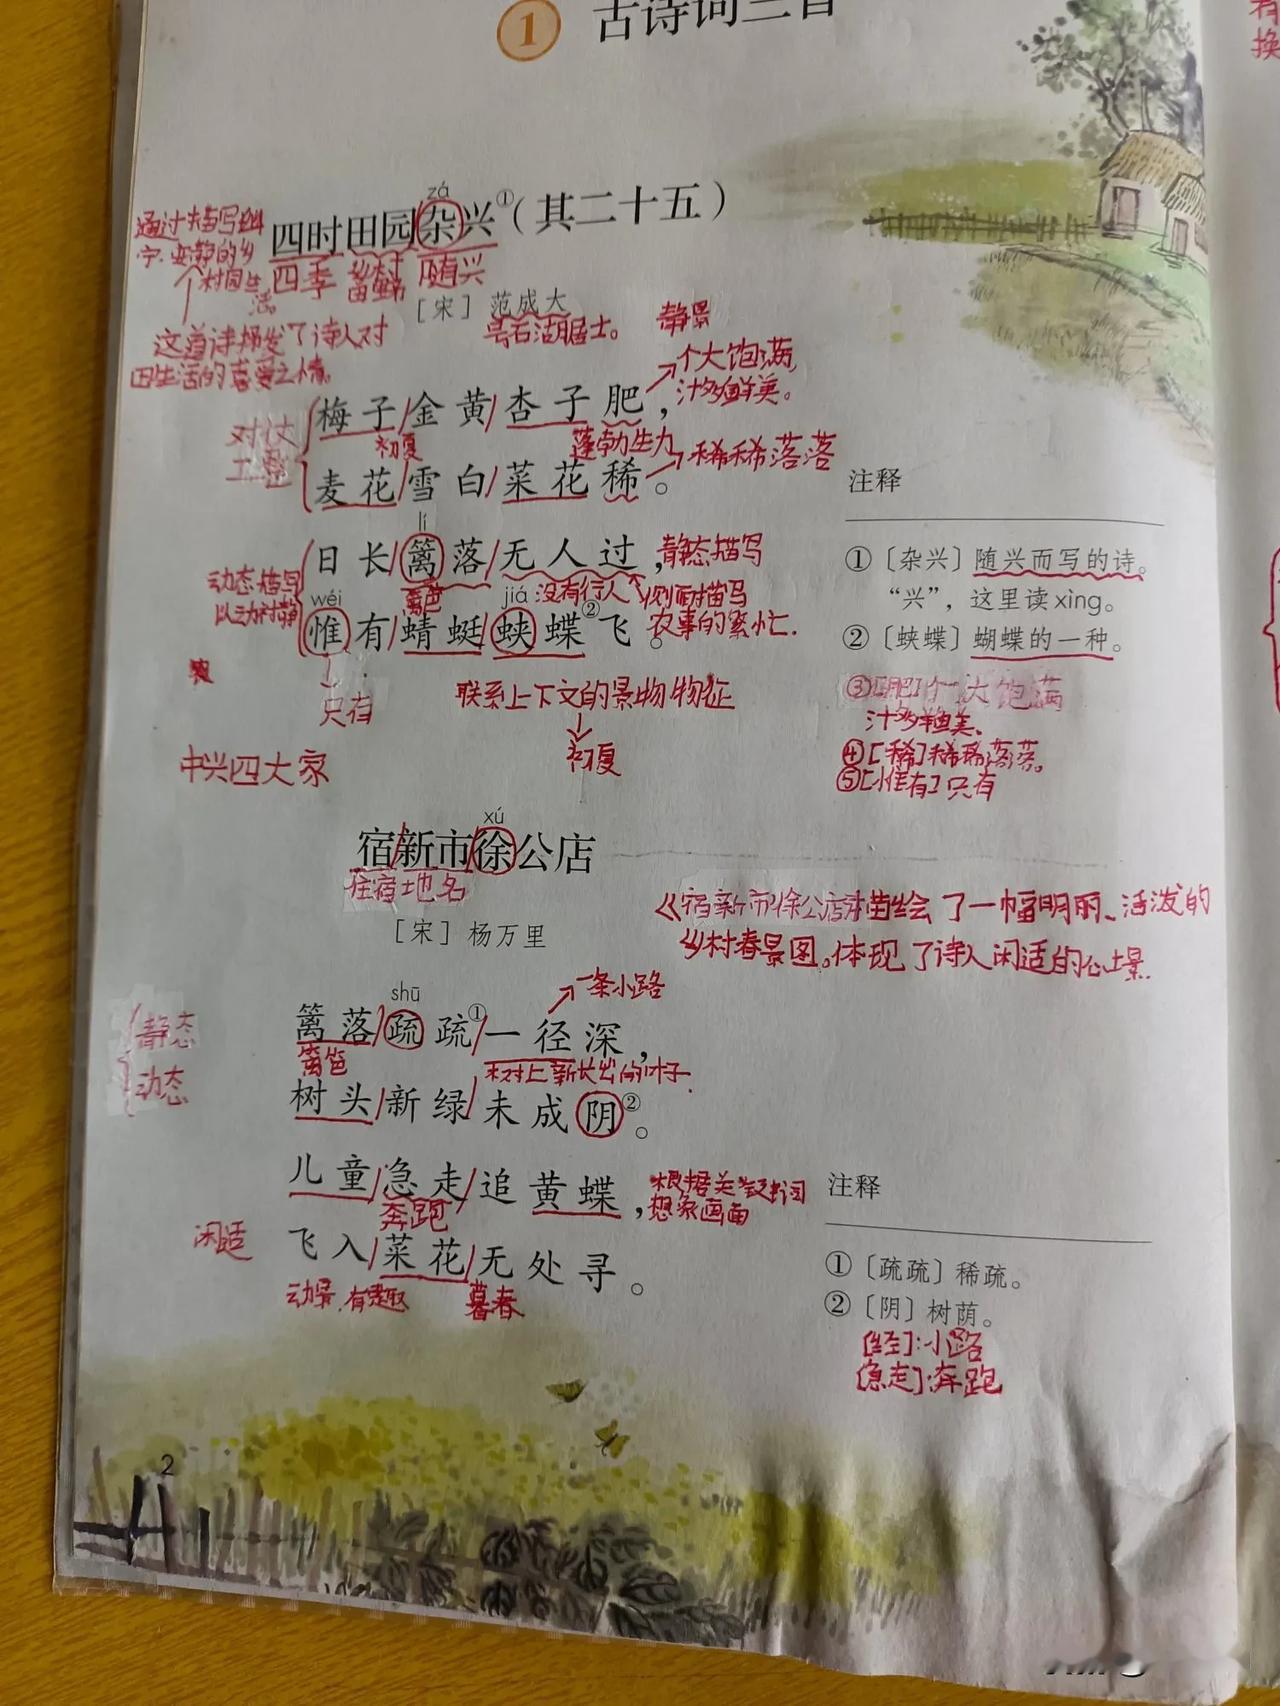 1 古诗词三首
zá
四时田园杂兴①(其二十五)
通过描写幽
宁、安静的乡
村田生
活。
四季 随兴
[宋] 范成大
号石湖居士。
静景
这首诗抒发了诗人对
田生活的喜爱之情。
个大饱满,
汁多鲜美。
梅子/金黄/杏子肥,
对仗
工整
初夏
蓬勃生力
稀稀落落
麦花/雪白/菜花稀。
lí
日长/篱落/无人过,
静态描写
动态描写
以动衬静
篱笆
没有行人
侧面描写
农事的繁忙.
wéi jiá
惟有/蜻蜓/蛱蝶②飞。
只有
联系上下文的景物物征
初夏
中兴四大家
注释
①〔杂兴〕随兴而写的诗。
“兴”,这里读xìng。
②〔蛱蝶〕蝴蝶的一种。
③[肥]个大饱满
汁多鲜美、
④[稀]稀稀落落。
⑤[惟有]只有
xú
宿/新市/徐公店
住宿地名
[宋] 杨万里
《宿新市徐公店》描绘了一幅明丽、活泼的
乡村春景图。体现了诗人闲适的心境.
一条小路
shū
篱落/疏疏①/一径深,
静态
篱笆
树上新长出的叶子.
动态
树头/新绿/未成阴②。
儿童/急走/追黄蝶,
奔跑
根据关键词
想象画面
闲适
飞入/菜花/无处寻。
动景,有趣
暮春
注释
①〔疏疏〕稀疏。
②〔阴〕树荫。
[径]:小路
[急走]:奔跑
2
有
换